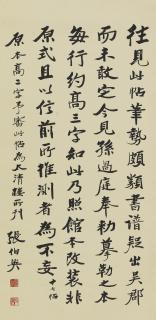 往見此帖筆勢頗類書譜疑出吳郡
而未敢定今見孫過庭奉勅摹勒之本
每行約高三字知乃照館本改裝非
原式且以信前所推測者為不妄 十七帖
原本高二字予審此帖為大清樓所刊 張伯英